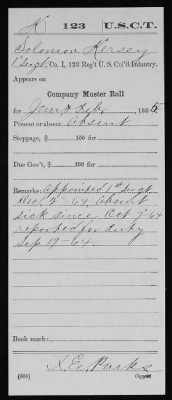 K | 123 | U.S.C.T.
Solomon Kersey
1 Sergt., Co. I, 123 Reg't U. S. Col'd Infantry.
Appears on
Company Muster Roll
for Jan & Feby, 1865.
Present or absent, Absent
Stoppage, $ 100 for
Due Gov't, $ 100 for
Remarks: Appointed 1st Sergt.
Dec. 2-64. Absent
sick since Oct 7-64
reported for duty
Sep 19-64.
Book mark:
(358)
Parks
Copyist.